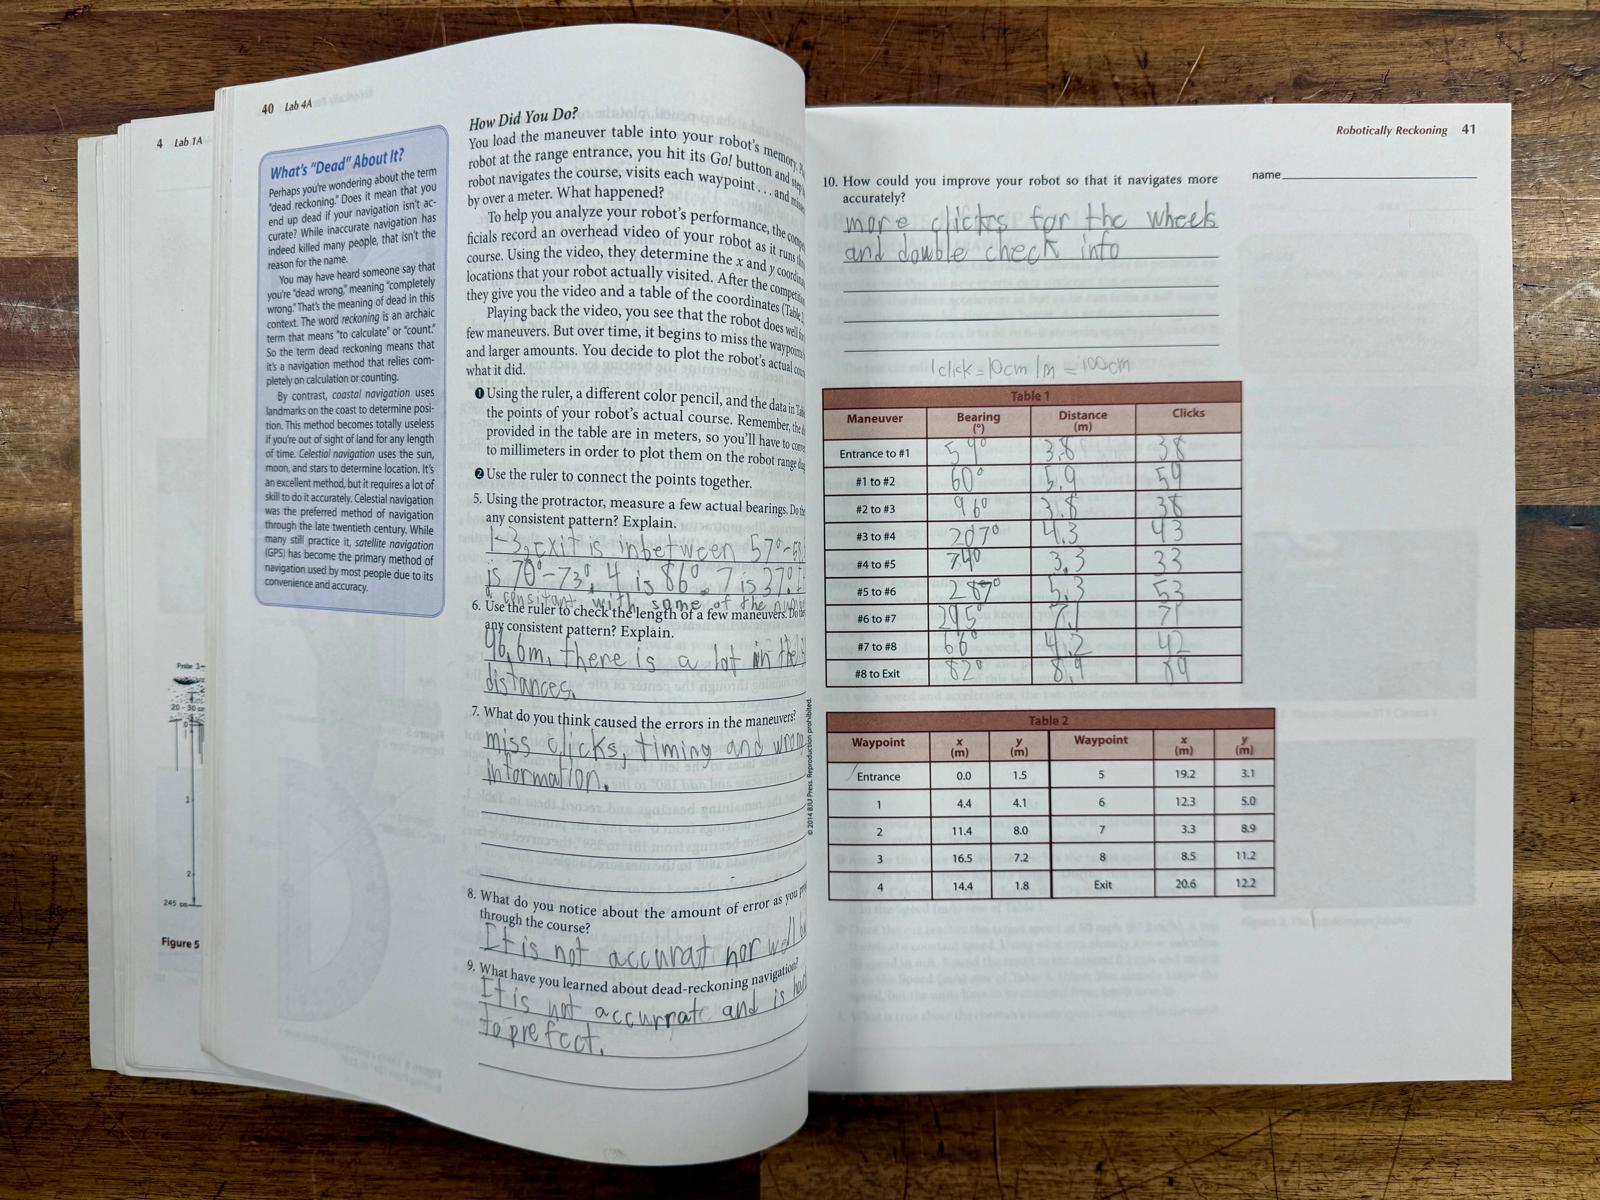 4 Lab 1A
Probe 3-
20 - 30 cm
1
2
245 cm
Figure 5
40 Lab 4A
What's "Dead" About It?
Perhaps you're wondering about the term
"dead reckoning." Does it mean that you
end up dead if your navigation isn't ac-
curate? While inaccurate navigation has
indeed killed many people, that isn't the
reason for the name.
You may have heard someone say that
you're "dead wrong," meaning "completely
wrong." That's the meaning of dead in this
context. The word reckoning is an archaic
term that means "to calculate" or "count."
So the term dead reckoning means that
it's a navigation method that relies com-
pletely on calculation or counting.
By contrast, coastal navigation uses
landmarks on the coast to determine posi-
tion. This method becomes totally useless
if you're out of sight of land for any length
of time. Celestial navigation uses the sun,
moon, and stars to determine location. It's
an excellent method, but it requires a lot of
skill to do it accurately. Celestial navigation
was the preferred method of navigation
through the late twentieth century. While
many still practice it, satellite navigation
(GPS) has become the primary method of
navigation used by most people due to its
convenience and accuracy.
How Did You Do?
You load the maneuver table into your robot's memory.
robot at the range entrance, you hit its Go! button and
robot navigates the course, visits each waypoint . . . and
by over a meter. What happened?
To help you analyze your robot's performance, the
ficials record an overhead video of your robot as it runs
course. Using the video, they determine the x and y
locations that your robot actually visited. After the
they give you the video and a table of the coordinates (Table
Playing back the video, you see that the robot does well
few maneuvers. But over time, it begins to miss the
and larger amounts. You decide to plot the robot's actual
what it did.
1 Using the ruler, a different color pencil, and the data in
the points of your robot's actual course. Remember, the
provided in the table are in meters, so you'll have to
to millimeters in order to plot them on the robot range
2 Use the ruler to connect the points together.
5. Using the protractor, measure a few actual bearings. Do
any consistent pattern? Explain.
1-3, exit is inbetween 57°-
is 70°-73°, 4 is 86°. 7 is 37°.
consitant with some of the
6. Use the ruler to check the length of a few maneuvers. Do
any consistent pattern? Explain.
46.6m, there is a lot in the
distances.
7. What do you think caused the errors in the maneuvers?
miss clicks, timing and wrong
information.
8. What do you notice about the amount of error as you
through the course?
It is not accurat nor well
9. What have you learned about dead-reckoning navigation?
It is not accurrate and is
to prefect.
© 2014 BJU Press. Reproduction prohibited.
Robotically Reckoning 41
name
10. How could you improve your robot so that it navigates more
accurately?
more clicks for the wheels
and double check into
1 click = 10cm 1m = 100cm
Table 1
Maneuver Bearing (°) Distance (m) Clicks
Entrance to #1 59° 3.8 38
#1 to #2 60° 5.9 59
#2 to #3 96° 3.8 38
#3 to #4 207° 4.3 43
#4 to #5 74° 3.3 33
#5 to #6 287° 5.3 53
#6 to #7 295° 7.1 71
#7 to #8 66° 4.2 42
#8 to Exit 82° 8.9 89
Table 2
Waypoint x (m) y (m) Waypoint x (m) y (m)
Entrance 0.0 1.5 5 19.2 3.1
1 4.4 4.1 6 12.3 5.0
2 11.4 8.0 7 3.3 8.9
3 16.5 7.2 8 8.5 11.2
4 14.4 1.8 Exit 20.6 12.2